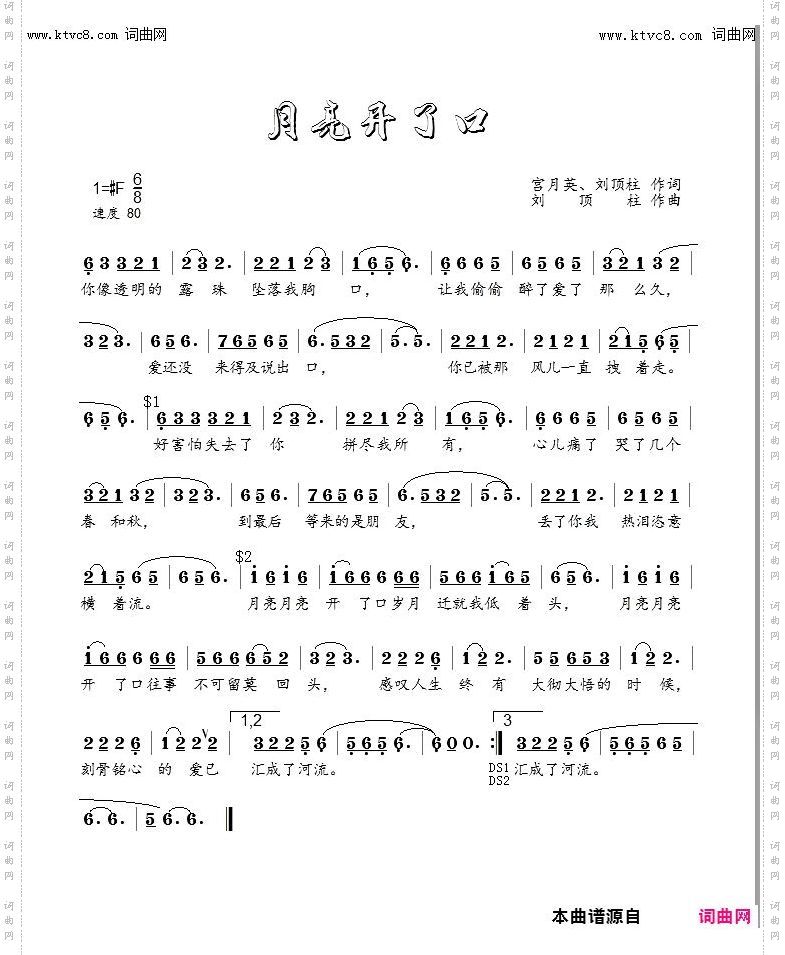 www.ktvc8.com 词曲网 www.ktvc8.com 词曲网
月亮开了口
1=#F 6/8
宫月英、刘顶柱 作词
速度 80
刘 顶 柱 作曲
6 3 3 3 2 1 | 2 3 2. | 2 2 1 2 3 | 1 6 5 6. | 6 6 6 5 | 6 5 6 5 | 3 2 1 3 2 |
你像透明的 露 珠 坠落我胸 口, 让我偷偷 醉了爱了 那 么久,
3 2 3. | 6 5 6. | 7 6 5 6 5 | 6. 5 3 2 | 5. 5. | 2 2 1 2. | 2 1 2 1 | 2 1 5 6 5 |
爱还没 来得及说出 口, 你已被那 风儿一直 拽 着走。
6 5 6. | $1 6 3 3 3 2 1 | 2 3 2. | 2 2 1 2 3 | 1 6 5 6. | 6 6 6 5 | 6 5 6 5 |
好害怕失去了 你 拼尽我所 有, 心儿痛了 哭了几个
3 2 1 3 2 | 3 2 3. | 6 5 6. | 7 6 5 6 5 | 6. 5 3 2 | 5. 5. | 2 2 1 2. | 2 1 2 1 |
春 和秋, 到最后 等来的是朋 友, 丢了你我 热泪恣意
2 1 5 6 5 | 6 5 6. | $2 1 6 1 6 | 1 6 6 6 6 6 | 5 6 6 1 6 5 | 6 5 6. | 1 6 1 6 |
横 着流。 月亮月亮 开 了口岁月 迁就我低 着头, 月亮月亮
1 6 6 6 6 6 | 5 6 6 6 5 2 | 3 2 3. | 2 2 2 6 | 1 2 2. | 5 5 6 5 3 | 1 2 2. |
开 了口往事 不可留莫 回头, 感叹人生 终 有 大彻大悟的 时 候,
2 2 2 6 | 1 2 2 V 2 | 1,2 3 2 2 5 6 | 5 6 5 6. | 6 0 0. :| 3 3 2 2 5 6 | 5 6 5 6 5 |
刻骨铭心 的 爱已 汇成了河流。 DS1 汇成了河流。
DS2
6. 6. | 5 6. 6. ‖
本曲谱源自 词曲网